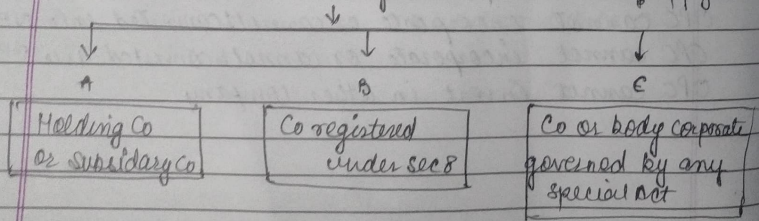 A
B
C
Holding Co
or subsidary Co
Co registered
under sec 8
Co or body corporate
governed by any
special act